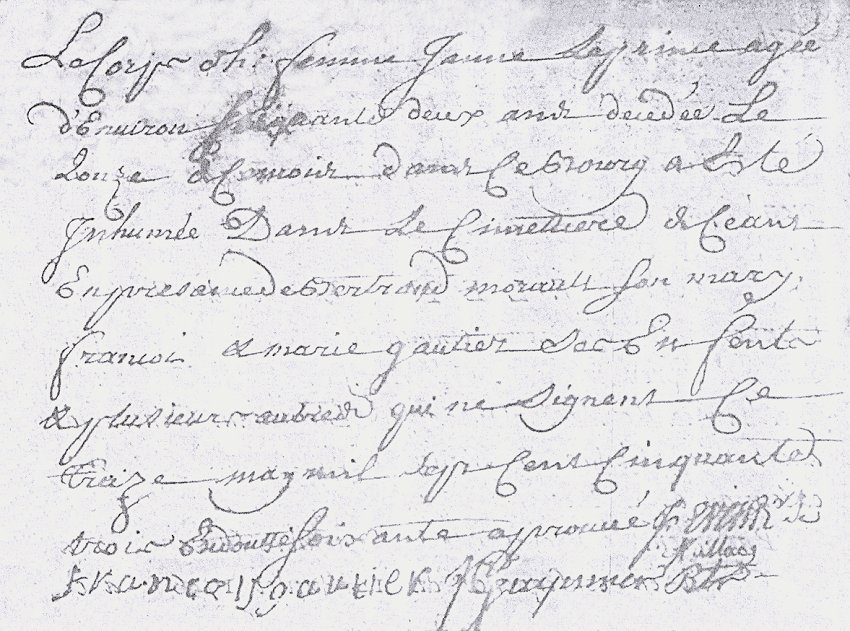 Le Corps d'h: femme Janne Leprince agée
d'Environ Cinquante deux ans decedée Le
Douze de Ce mois dans Ce Bourg a Esté
Inhumée Dans Le Cimettiere de Céans
En presance de Bertrand morault son mary,
francois & marie gautier ses Enfents
& plusieurs autres qui ne Signent Ce
traize may mil sept Cent Cinquante
trois soixante aprouvé
francois gautier